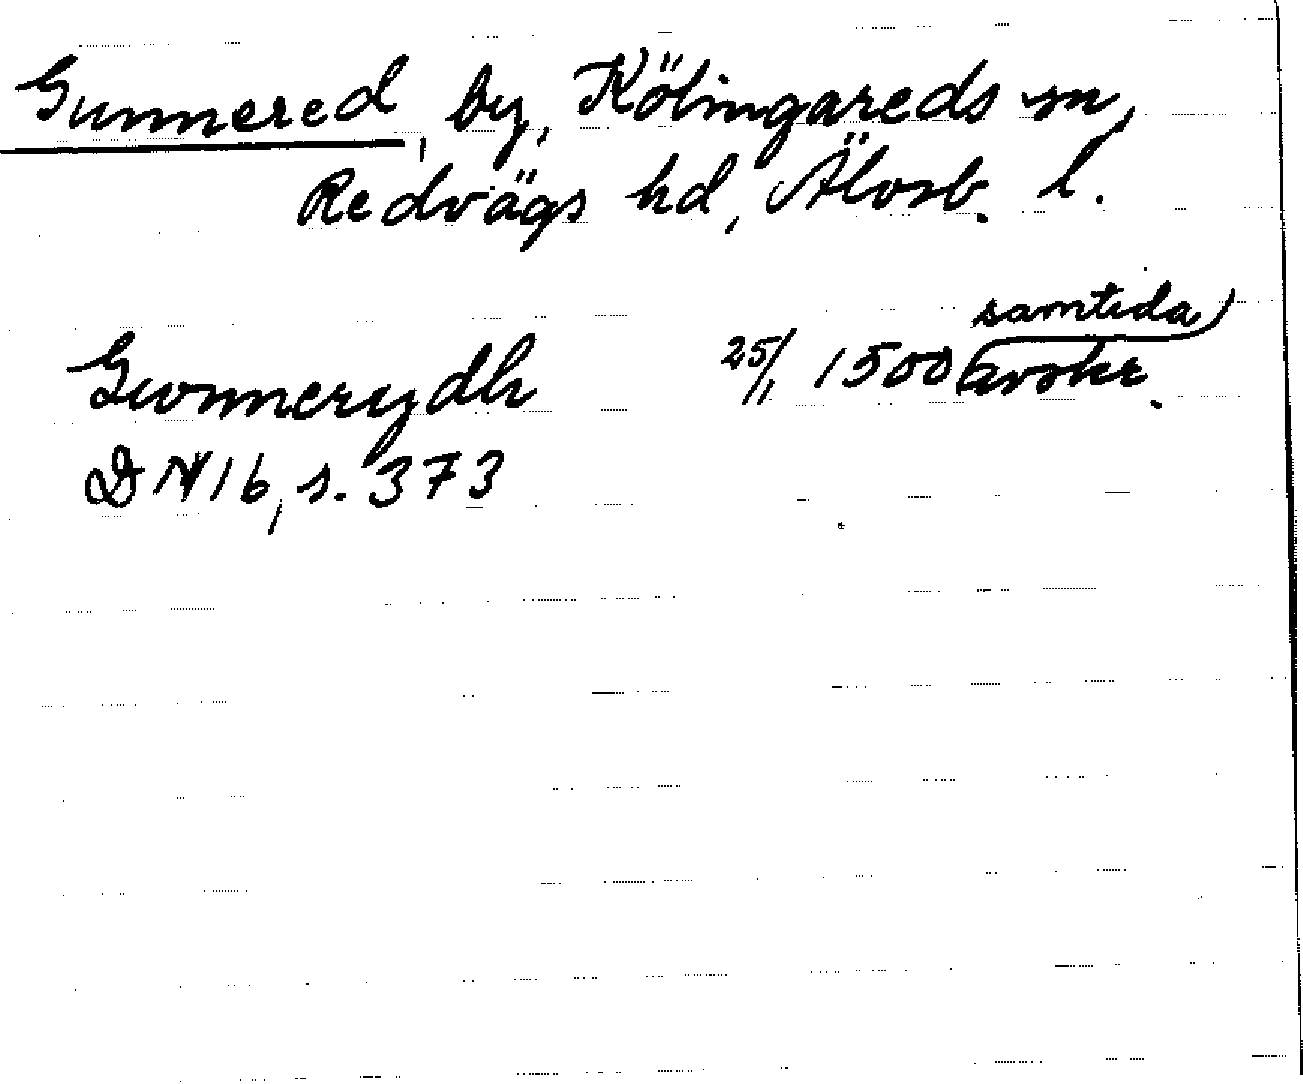 Gunnered, by, Kölingareds sn,
Redvägs hd, Älvsb. l.
samtida
Gwnnerydh 25/1 1500 avskr.
DN 16, s. 373